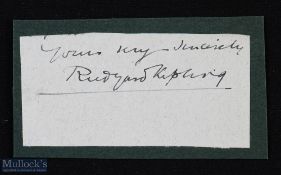 Yours very Sincerely
Rudyard Kipling
Mullock's